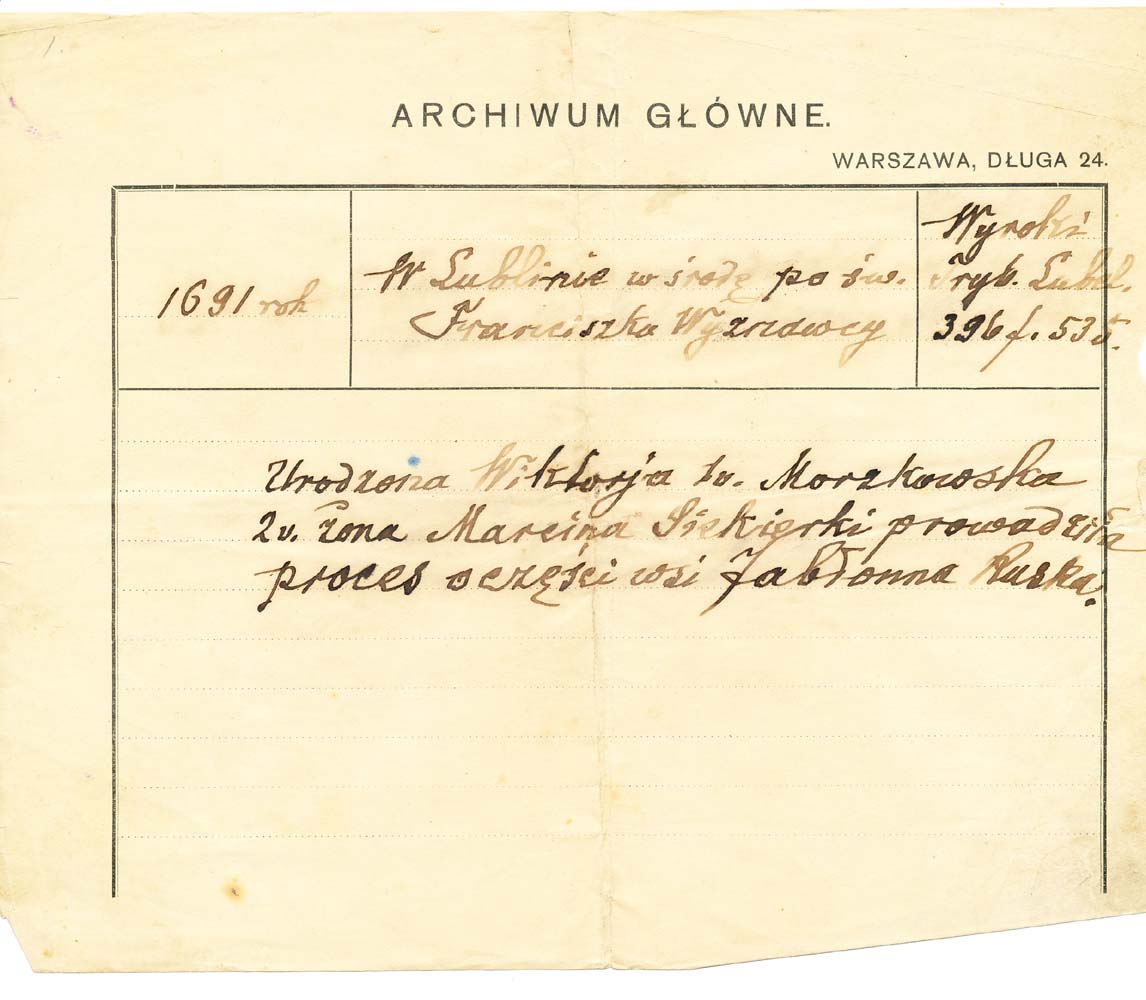 1.
ARCHIWUM GŁÓWNE.
WARSZAWA, DŁUGA 24.
1691 rok
W Lublinie w środę po św.
Franciszku Wyznawcy
Wyroki
Tryb. Lubel.
396 f. 535.
Urodzona Wiktorja 1v. Morzkowska
2v. żona Marcina Siekierki prowadziła
proces o części wsi Jabłonna Ruska.